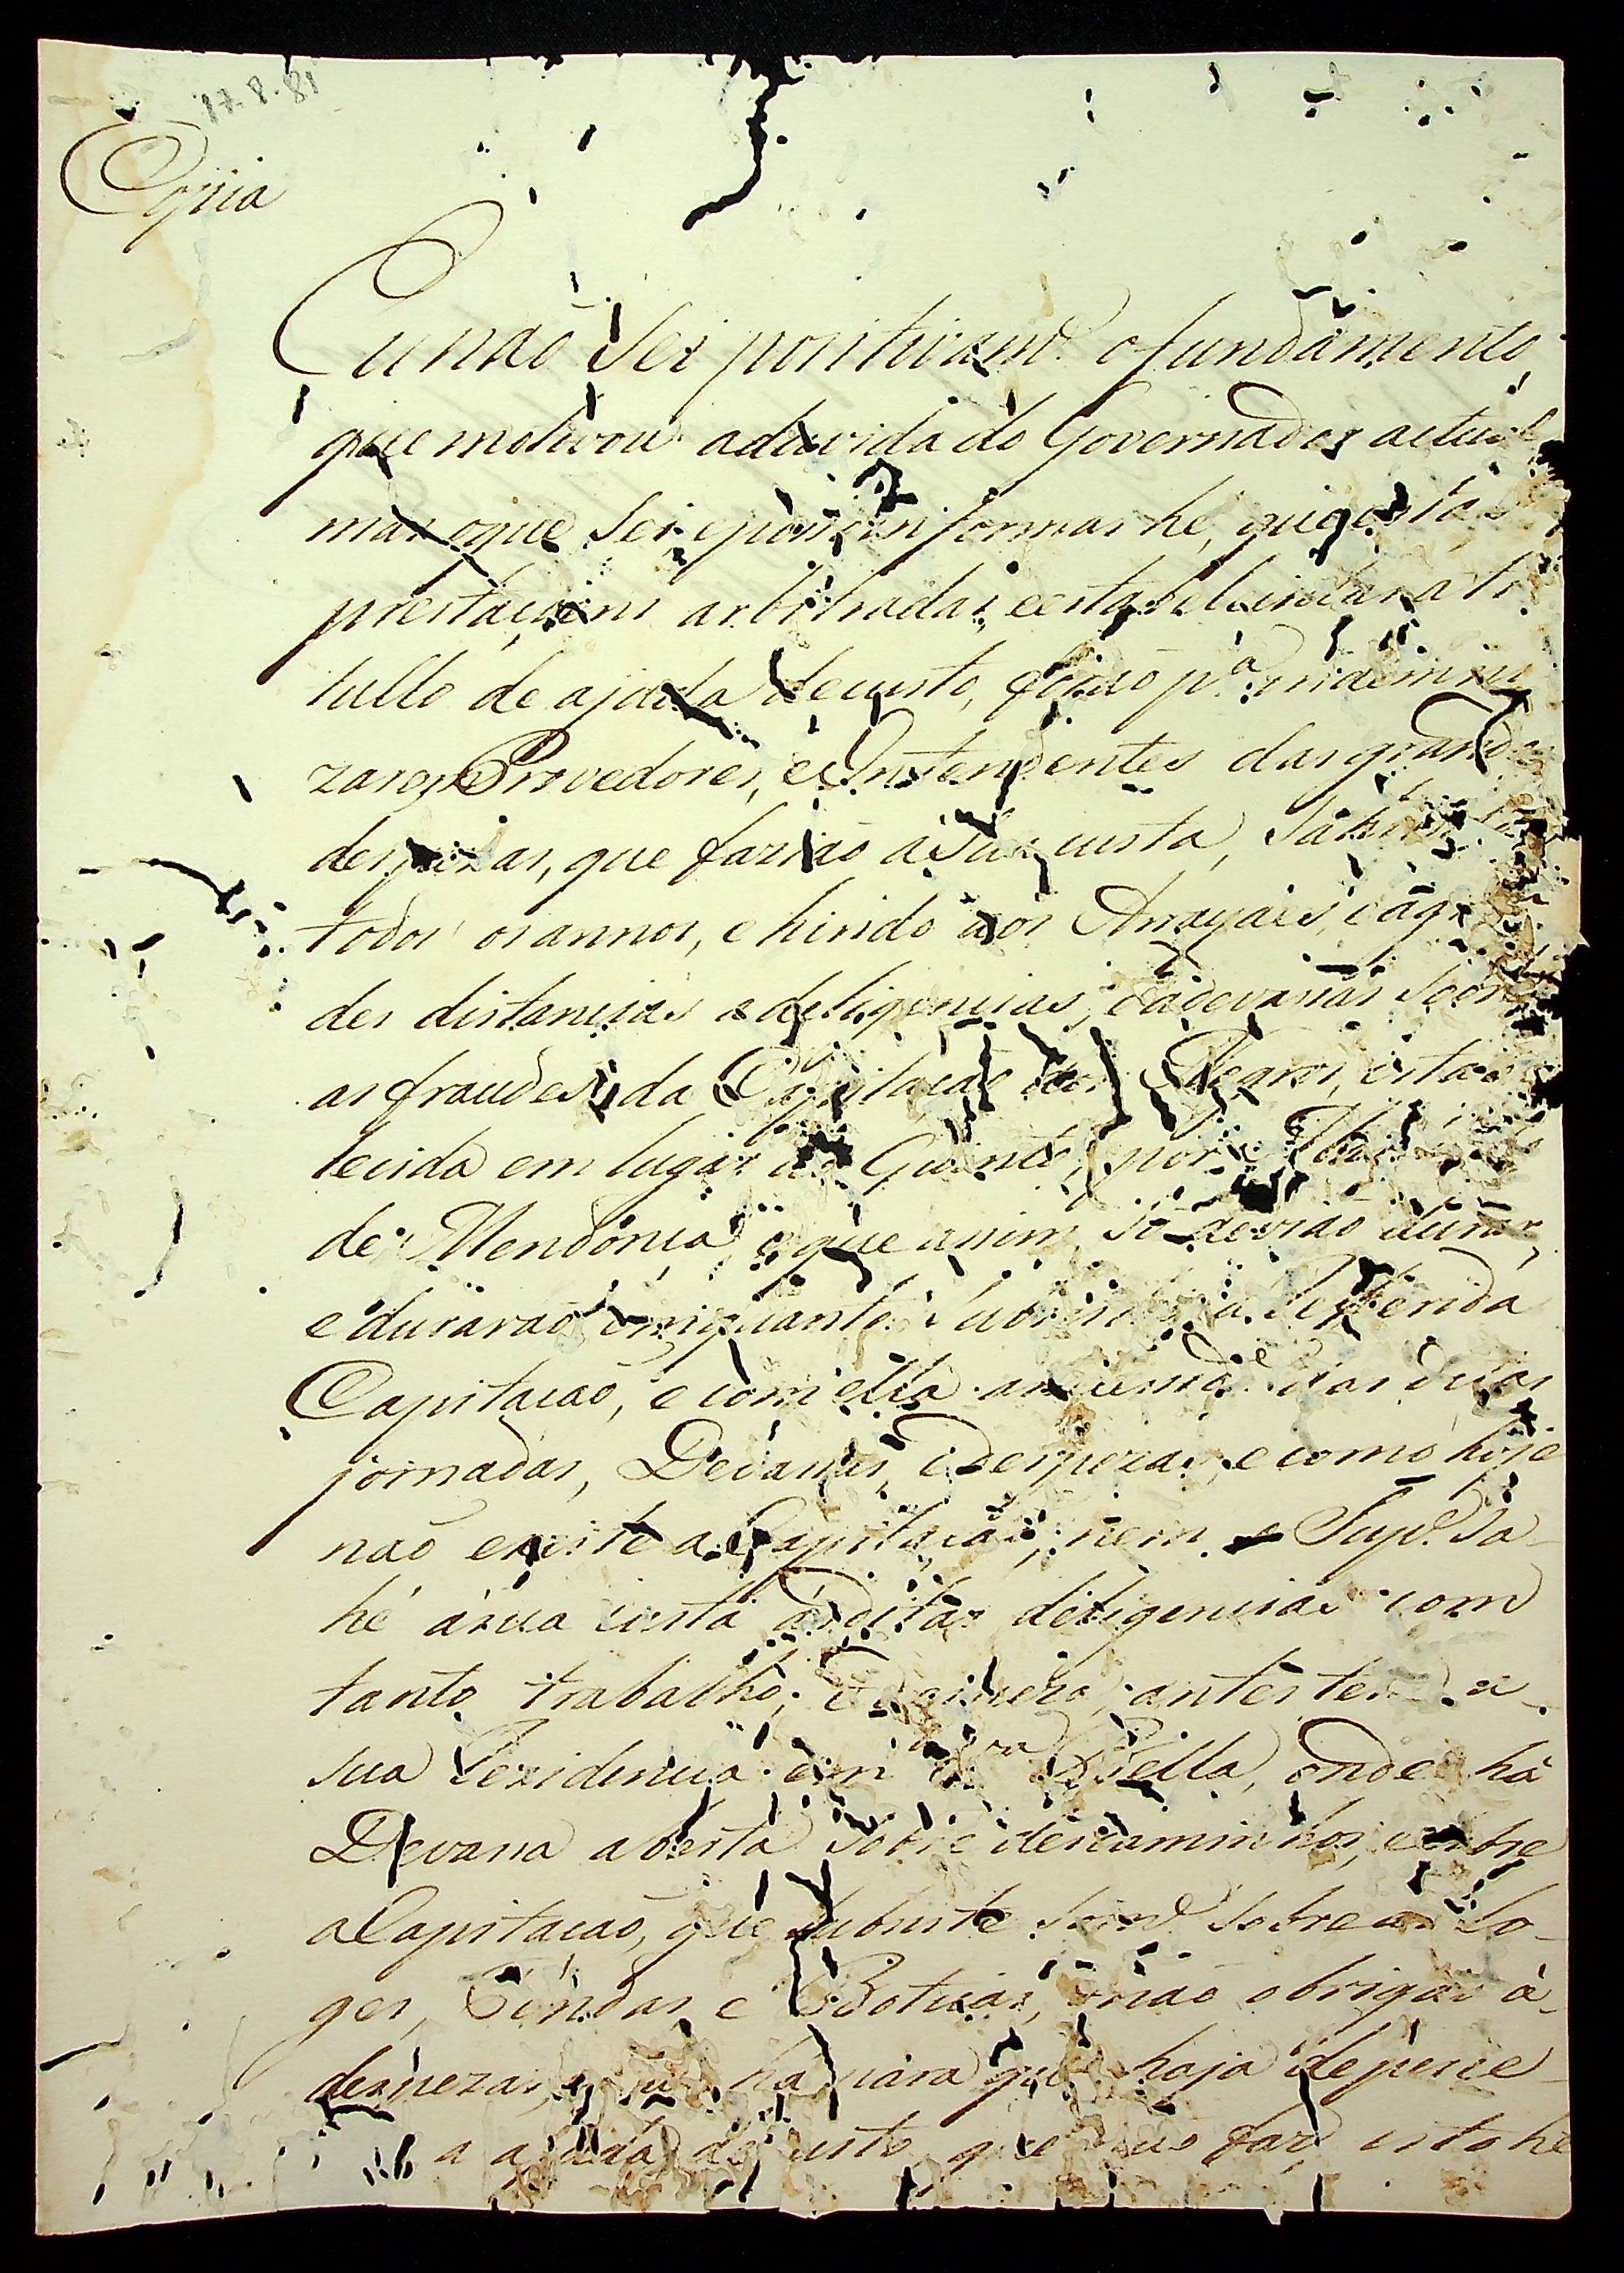 17.8.81
Copia
Eu naõ sei positivam.e o fundamento,
que motivou aduvida do Governador actual
mas oque sei, eposso informar he, que estas
prestaçoens arbitradas, eestabelecidas a ti
tullo de ajuda decusto, foraõ p.a indemni
zar os Provedores, e Intendentes das grandes
despezas, que faziaõ á Sua custa, Sahindo
todos os annos, e hindo aos Arrayaes, e ag
des distancias a deligencias, e adevassas Sobre
as fraudes da Capitaçaõ dos Negros, estabe
lecida em lugar do Quinto, por
de Mendonça, e que assim só deviaõ durar,
e duraraõ emquanto Subsistio a Referida
Capitaçaõ, e com ella as ditas
jornadas, Devassas, e despezas, e como hoje
naõ existe a Capitaçaõ, nem o Sup.e Sa-
hé ásua custa ás ditas deligencias com
tanto trabalho, e antes tem a
sua Rezidencia em V.a Bella, onde há
Devassa aberta Sobre descaminhos, e sobre
aCapitaçaõ, que Subsiste Som.e Sobre as Lo-
ges, Vendas, e Boticas, onaõ obrigaõ á
despezas, naõ há para que haja de perce
a ajuda de custo, que naõ faz, isto he